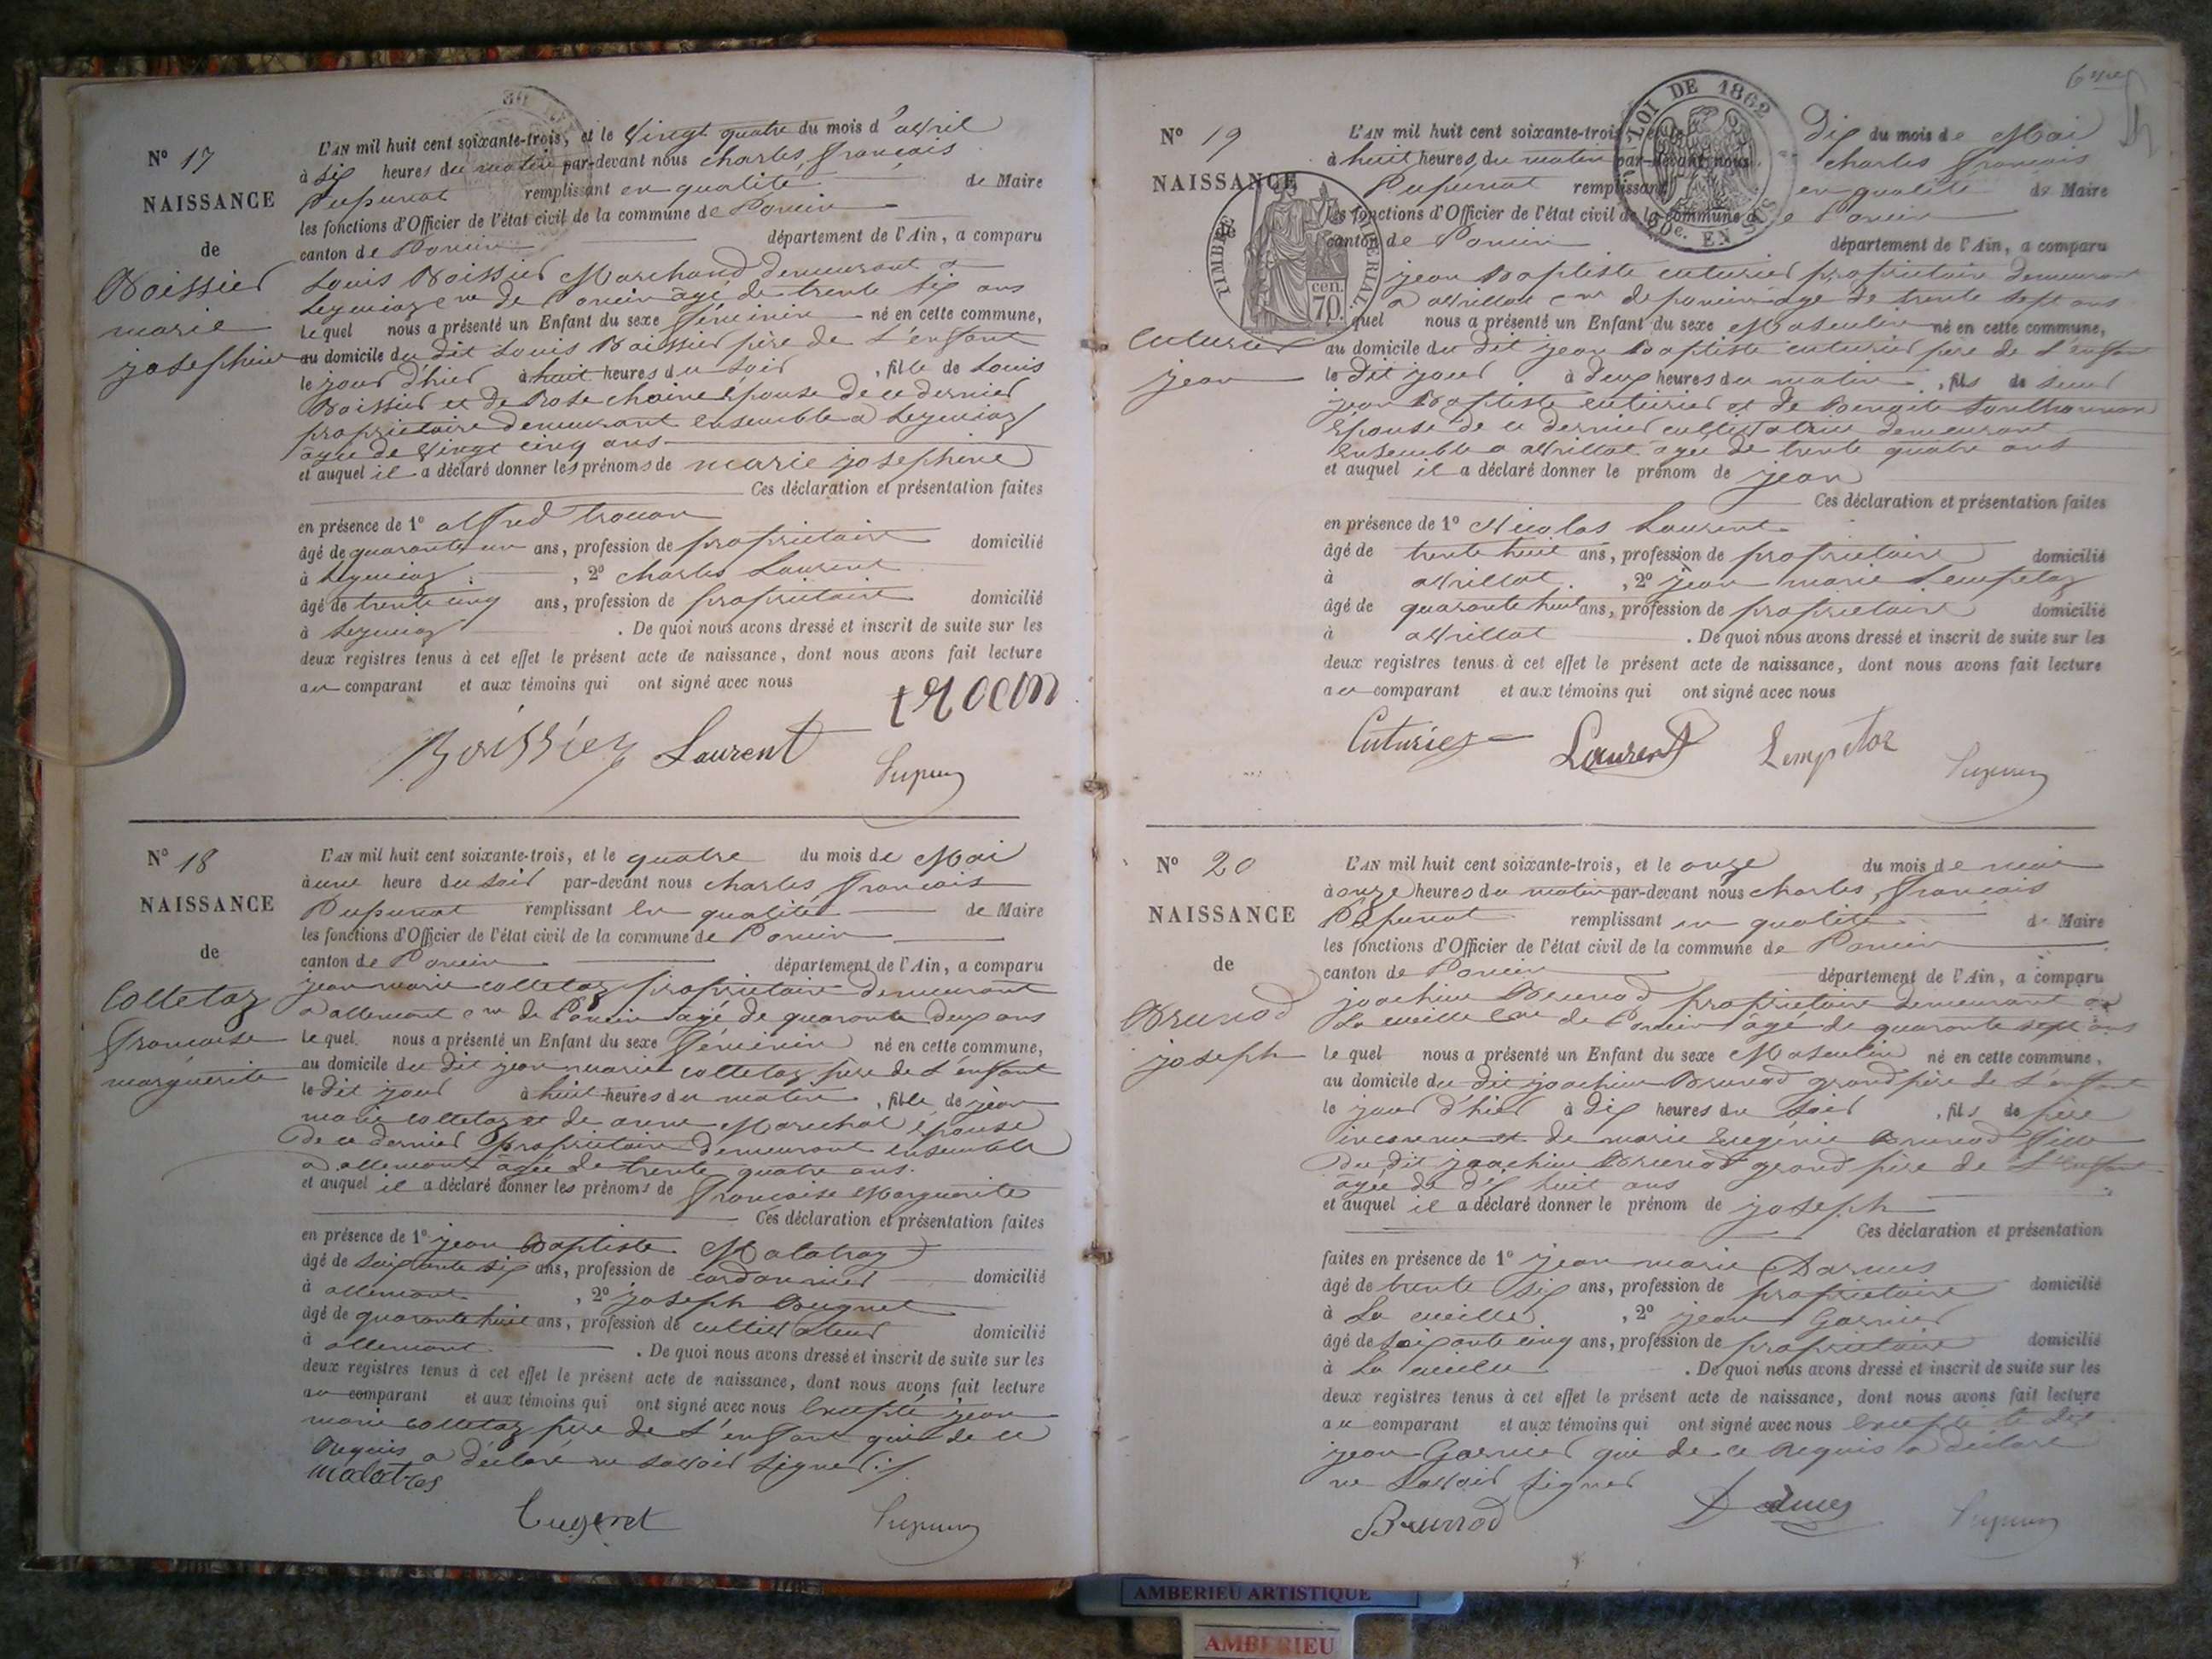 N° 17
NAISSANCE
de
Boissier
marie
josephine
L'AN mil huit cent soixante-trois, et le Vingt quatre du mois d'avril
à dix heures du matin par-devant nous charles françois
Pupunat remplissant en qualité de Maire
les fonctions d'Officier de l'état civil de la commune de Poncin
canton de Poncin département de l'Ain, a comparu
Louis Boissier Marchand demeurant a
Leymiaz cne de Poncin agé de trente six ans
Lequel nous a présenté un Enfant du sexe féminin né en cette commune,
au domicile du dit Louis Boissier père de l'enfant
le jour d'hier à huit heures du soir, fille de Louis
Boissier et de Rose chaine épouse de ce dernier
proprietaire demeurant ensemble a Leymiaz
agée de Vingt cinq ans
et auquel il a déclaré donner les prénoms de marie josephine
Ces déclaration et présentation faites
en présence de 1° alfred trocon
âgé de quarante un ans, profession de proprietaire domicilié
à Leymiaz, 2° charles Laurent
âgé de trente cinq ans, profession de proprietaire domicilié
à Leymiaz. De quoi nous avons dressé et inscrit de suite sur les
deux registres tenus à cet effet le présent acte de naissance, dont nous avons fait lecture
au comparant et aux témoins qui ont signé avec nous
trocon
Boissier Laurent
Pupun
N° 18
NAISSANCE
de
Colletaz
françoise
marguerite
L'AN mil huit cent soixante-trois, et le quatre du mois de Mai
à une heure du soir par-devant nous charles françois
Pupunat remplissant en qualité de Maire
les fonctions d'Officier de l'état civil de la commune de Poncin
canton de Poncin département de l'Ain, a comparu
jean marie colletaz proprietaire demeurant
a allement cne de Poncin agé de quarante deux ans
Lequel nous a présenté un Enfant du sexe féminin né en cette commune,
au domicile du dit jean marie colletaz père de l'enfant
le dit jour à huit heures du matin, fille de jean
marie colletaz et de anne Marechal épouse
de ce dernier proprietaire demeurant ensemble
a allement agée de trente quatre ans.
et auquel il a déclaré donner les prénoms de françoise Marguerite
Ces déclaration et présentation faites
en présence de 1° jean Baptiste Malatray
âgé de soixante six ans, profession de cordonnier domicilié
à allement, 2° joseph Bugnet
âgé de quarante huit ans, profession de cultivateur domicilié
à allement. De quoi nous avons dressé et inscrit de suite sur les
deux registres tenus à cet effet le présent acte de naissance, dont nous avons fait lecture
au comparant et aux témoins qui ont signé avec nous Excepté jean
marie colletaz père de l'enfant qui de ce
Requis a déclaré ne savoir signer
Pupun
N° 19
NAISSANCE
cuturier
jean
TIMBRE IMPERIAL
cen. 70.
LOI DE 1862
EN SUS
L'AN mil huit cent soixante-trois, et le Dix du mois de Mai
à huit heures du matin par-devant nous charles françois
Pupunat remplissant en qualité de Maire
les fonctions d'Officier de l'état civil de la commune de Poncin
canton de Poncin département de l'Ain, a comparu
jean Baptiste cuturier proprietaire demeurant
a avrillat cne de poncin agé de trente sept ans
quel nous a présenté un Enfant du sexe Masculin né en cette commune,
au domicile du dit jean Baptiste cuturier père de l'enfant
le dit jour à deux heures du matin, fils de
jean Baptiste cuturier et de Benoite
épouse de ce dernier cultivatrice demeurant
ensemble a avrillat agée de trente quatre ans
et auquel il a déclaré donner le prénom de jean
Ces déclaration et présentation faites
en présence de 1° Nicolas Laurent
âgé de trente huit ans, profession de proprietaire domicilié
à avrillat, 2° jean marie Lempetaz
âgé de quarante huit ans, profession de proprietaire domicilié
à avrillat. De quoi nous avons dressé et inscrit de suite sur les
deux registres tenus à cet effet le présent acte de naissance, dont nous avons fait lecture
au comparant et aux témoins qui ont signé avec nous
Cuturier Laurent Lempetaz
Pupun
N° 20
NAISSANCE
de
Brunod
joseph
L'AN mil huit cent soixante-trois, et le onze du mois de mai
à onze heures du matin par-devant nous charles françois
Pupunat remplissant en qualité de Maire
les fonctions d'Officier de l'état civil de la commune de Poncin
canton de Poncin département de l'Ain, a comparu
joachim Brunod proprietaire demeurant a
La cueille cne de Poncin âgé de quarante sept ans
lequel nous a présenté un Enfant du sexe Masculin né en cette commune,
au domicile du dit joachim Brunod grand père de l'enfant
le jour d'hier à dix heures du soir, fils de père
inconnu et de marie Eugénie Brunod fille
du dit joachim Brunod grand père de l'enfant
agée de dix huit ans
et auquel il a déclaré donner le prénom de joseph
Ces déclaration et présentation
faites en présence de 1° jean marie Darmes
âgé de trente six ans, profession de proprietaire domicilié
à La cueille, 2° jean Garnier
âgé de soixante cinq ans, profession de proprietaire domicilié
à La cueille. De quoi nous avons dressé et inscrit de suite sur les
deux registres tenus à cet effet le présent acte de naissance, dont nous avons fait lecture
au comparant et aux témoins qui ont signé avec nous Excepté le dit
jean Garnier qui de ce Requis a déclaré
ne savoir signer
Brunod
Pupun
AMBERIEU ARTISTIQUE
AMBERIEU